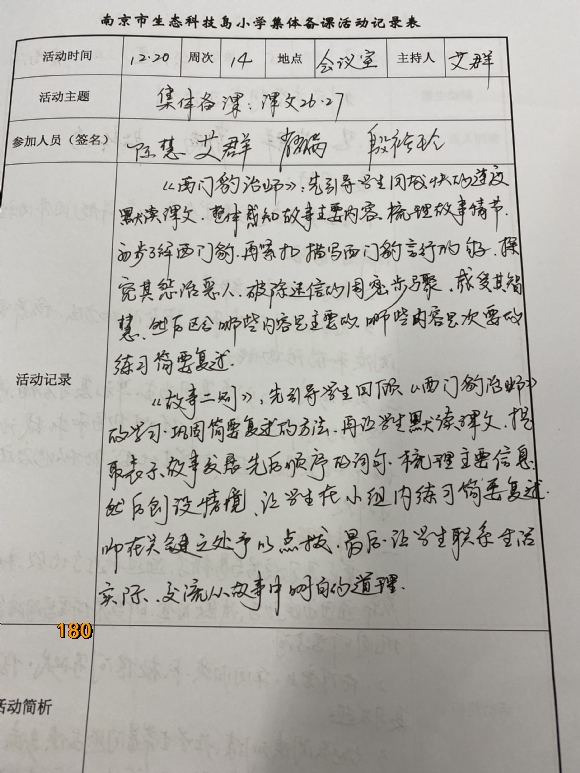 南京市生态科技岛小学集体备课活动记录表
活动时间 12.20 周次 14 地点 会议室 主持人 艾群
活动主题 集体备课:课文26.27
参加人员(签名) 陈慧 艾群
《西门豹治邺》,先引导学生用较快的速度
默读课文.整体感知故事主要内容.梳理故事情节.
初步了解西门豹.再紧扣描写西门豹言行的句子.探
究其惩治恶人、破除迷信的周密步骤.感受其智
慧.然后区分哪些内容是主要的.哪些内容是次要的
练习简要复述.
活动记录
《故事二则》,先引导学生回顾《西门豹治邺》
的学习.巩固简要复述的方法.再让学生默读课文.提
取表示故事发展先后顺序的词句.梳理主要信息.
然后创设情境、让学生在小组内练习简要复述.
师在关键之处予以点拨.最后让学生联系生活
实际、交流从故事中明白的道理.
180
活动简析